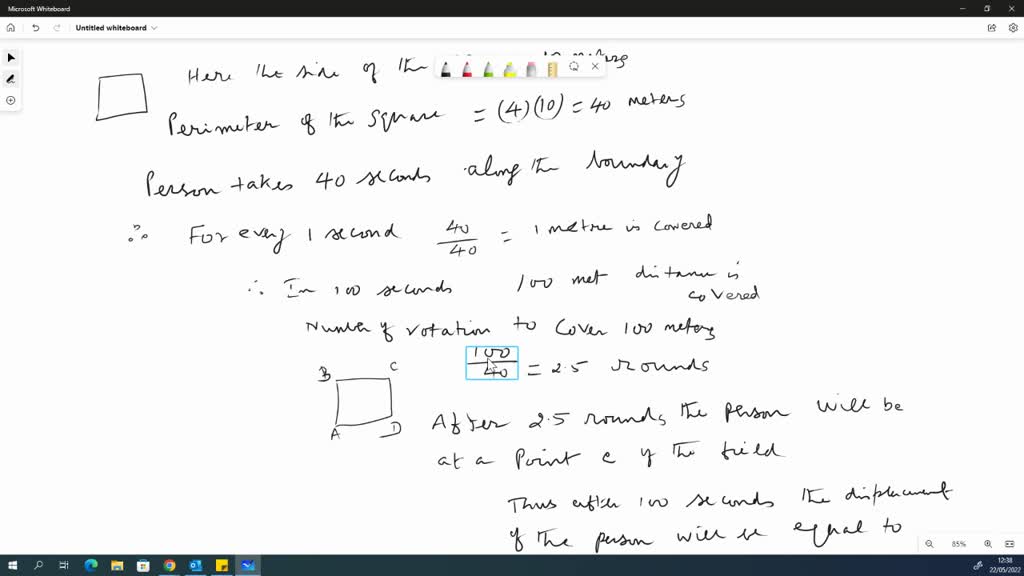 Microsoft Whiteboard
Untitled whiteboard
Here the side of the
Perimeter of the square = (4)(10) = 40 meters
Person takes 40 seconds along the boundary
∴ For every 1 second 40/40 = 1 metre is covered
∴ In 100 seconds 100 met distance is
covered
Number of rotation to cover 100 meters
100/40 = 2.5 rounds
B C
A D
After 2.5 rounds the person will be
at a point C of the field
Thus after 100 seconds the displacement
of the person will be equal to
85%
12:38
22/05/2022